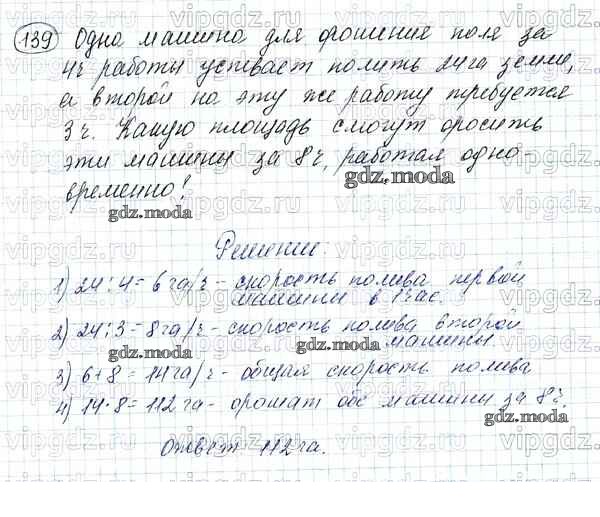 139 Одна машина для орошения поля за
4ч работы успевает полить 24га земли,
а второй на эту же работу требуется
3 ч. Какую площадь смогут оросить
эти машины за 8ч, работая одно-
временно?
gdz.moda
gdz.moda
Решение:
1) 24:4= 6 га/ч - скорость полива первой
машины в 1 час.
2) 24:3= 8га/ч - скорость полива второй
машины.
gdz.moda
gdz.moda
3) 6+8= 14га/ч - общая скорость полива
4) 14·8= 112 га - орошат обе машины за 8ч.
gdz.moda
Ответ 112га.